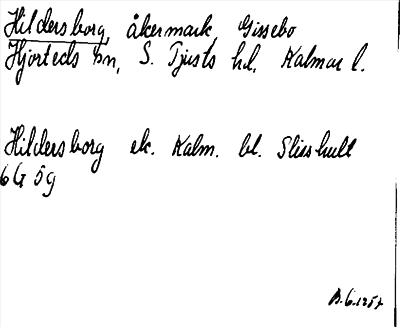 Hildersborg, åkermark, Gissebo
Hjorteds sn, S. Tjusts hd, Kalmar l.
Hildersborg ek. Kalm. bl. Slisshult
6G 5g